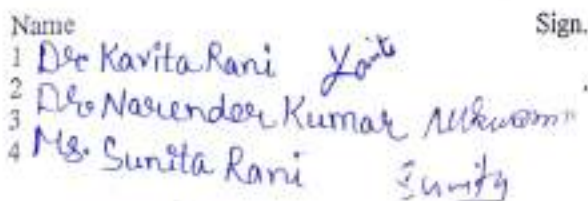 Name Sign.
1 Dr Kavita Rani
2 Dr. Narender Kumar
3
4 Ms. Sunita Rani Sunita